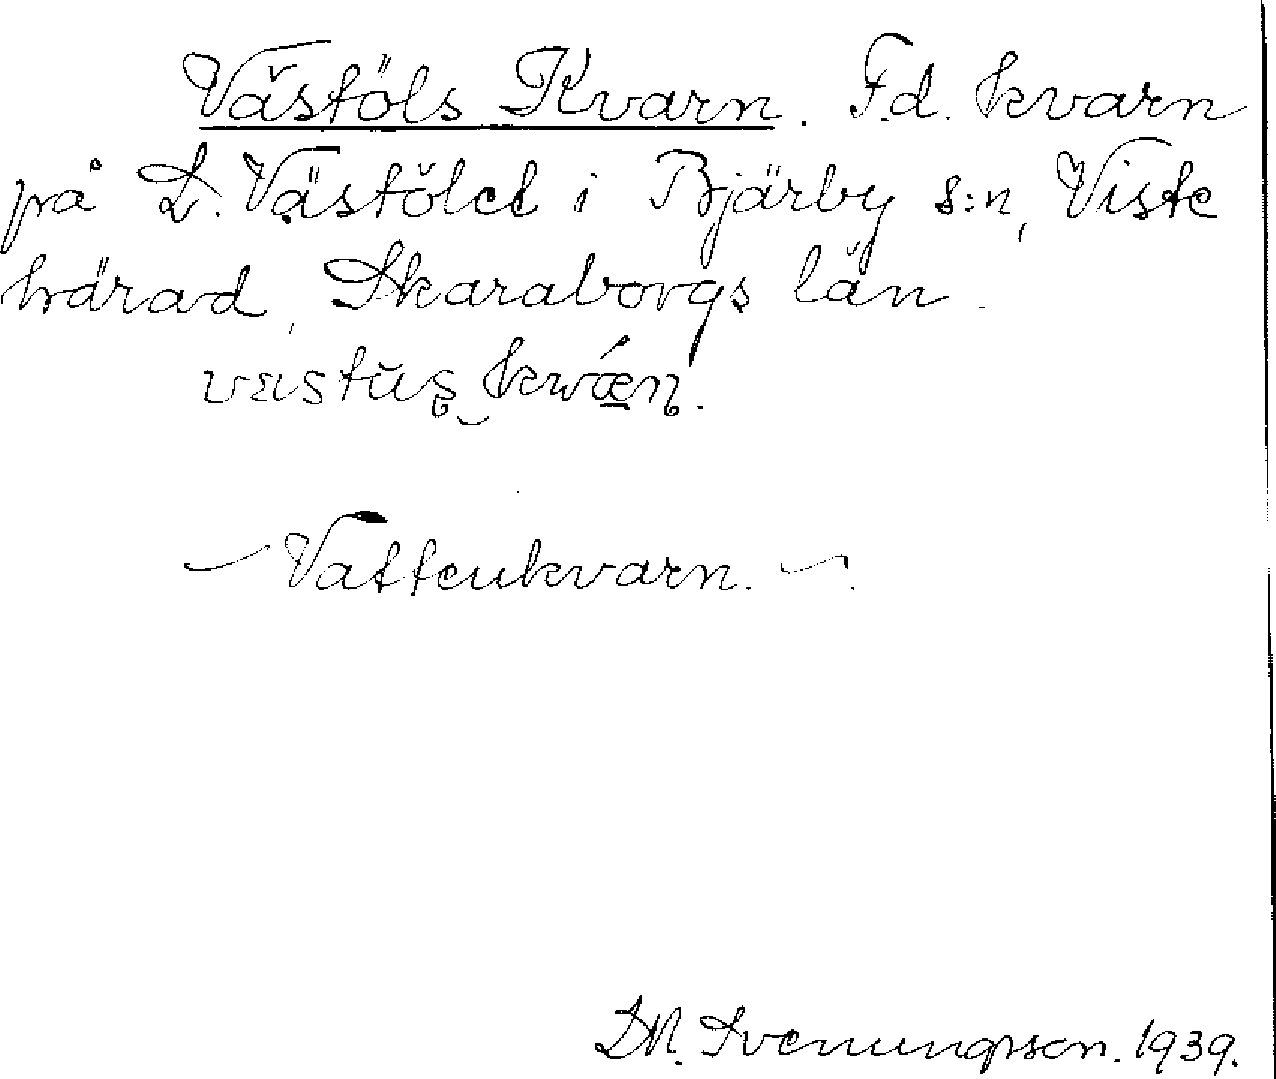 Västöls Kvarn. F.d. kvarn
på L. Västölet i Bjärby s:n, Viste
härad, Skaraborgs län.
Vattenkvarn.
Svenungsson. 1939.